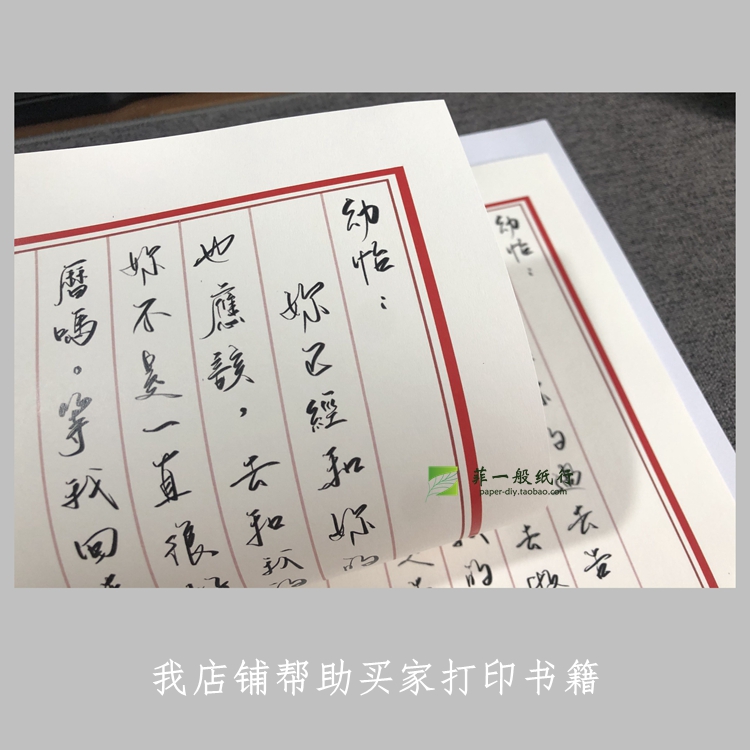 幼怡：
妳已經和妳的
也應該，去和我
妳不是一直很
曆嗎。等我回
幼怡：
過去告
的去
的
菲一般纸行
paper-diy.taobao.com
我店铺帮助买家打印书籍